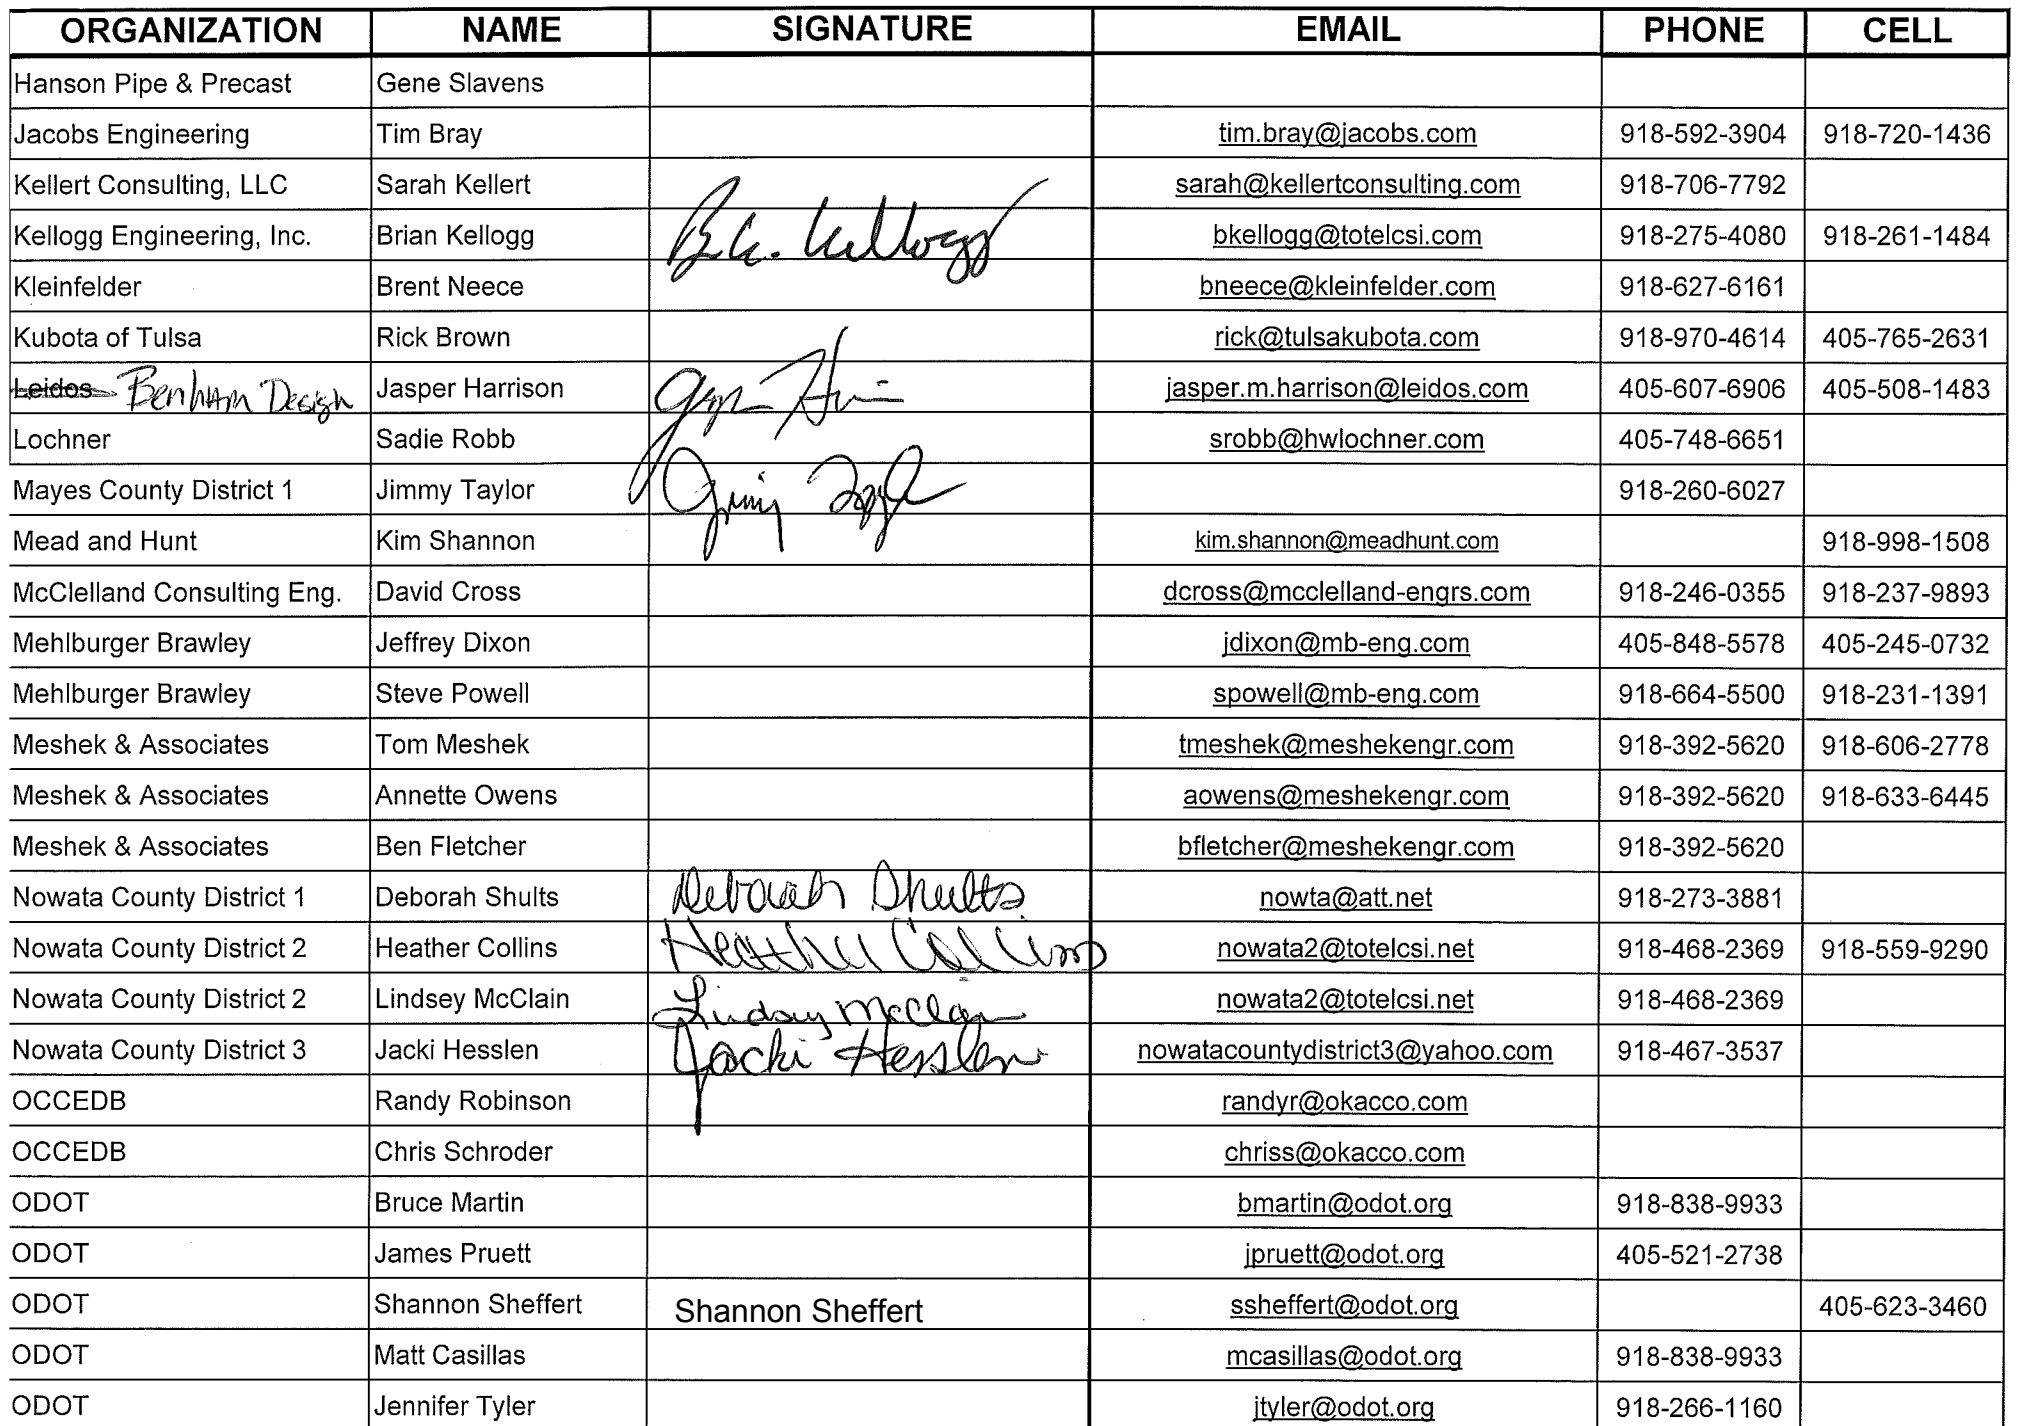 ORGANIZATION NAME SIGNATURE EMAIL PHONE CELL
Hanson Pipe & Precast Gene Slavens
Jacobs Engineering Tim Bray tim.bray@jacobs.com 918-592-3904 918-720-1436
Kellert Consulting, LLC Sarah Kellert sarah@kellertconsulting.com 918-706-7792
Kellogg Engineering, Inc. Brian Kellogg B.K. Kellogg bkellogg@totelcsi.com 918-275-4080 918-261-1484
Kleinfelder Brent Neece bneece@kleinfelder.com 918-627-6161
Kubota of Tulsa Rick Brown rick@tulsakubota.com 918-970-4614 405-765-2631
Leidos Benham Design Jasper Harrison jasper.m.harrison@leidos.com 405-607-6906 405-508-1483
Lochner Sadie Robb srobb@hwlochner.com 405-748-6651
Mayes County District 1 Jimmy Taylor 918-260-6027
Mead and Hunt Kim Shannon kim.shannon@meadhunt.com 918-998-1508
McClelland Consulting Eng. David Cross dcross@mcclelland-engrs.com 918-246-0355 918-237-9893
Mehlburger Brawley Jeffrey Dixon jdixon@mb-eng.com 405-848-5578 405-245-0732
Mehlburger Brawley Steve Powell spowell@mb-eng.com 918-664-5500 918-231-1391
Meshek & Associates Tom Meshek tmeshek@meshekengr.com 918-392-5620 918-606-2778
Meshek & Associates Annette Owens aowens@meshekengr.com 918-392-5620 918-633-6445
Meshek & Associates Ben Fletcher bfletcher@meshekengr.com 918-392-5620
Nowata County District 1 Deborah Shults Deborah Shults nowta@att.net 918-273-3881
Nowata County District 2 Heather Collins Heather Collins nowata2@totelcsi.net 918-468-2369 918-559-9290
Nowata County District 2 Lindsey McClain Lindsey McClain nowata2@totelcsi.net 918-468-2369
Nowata County District 3 Jacki Hesslen Jacki Hesslen nowatacountydistrict3@yahoo.com 918-467-3537
OCCEDB Randy Robinson randyr@okacco.com
OCCEDB Chris Schroder chriss@okacco.com
ODOT Bruce Martin bmartin@odot.org 918-838-9933
ODOT James Pruett jpruett@odot.org 405-521-2738
ODOT Shannon Sheffert Shannon Sheffert ssheffert@odot.org 405-623-3460
ODOT Matt Casillas mcasillas@odot.org 918-838-9933
ODOT Jennifer Tyler jtyler@odot.org 918-266-1160